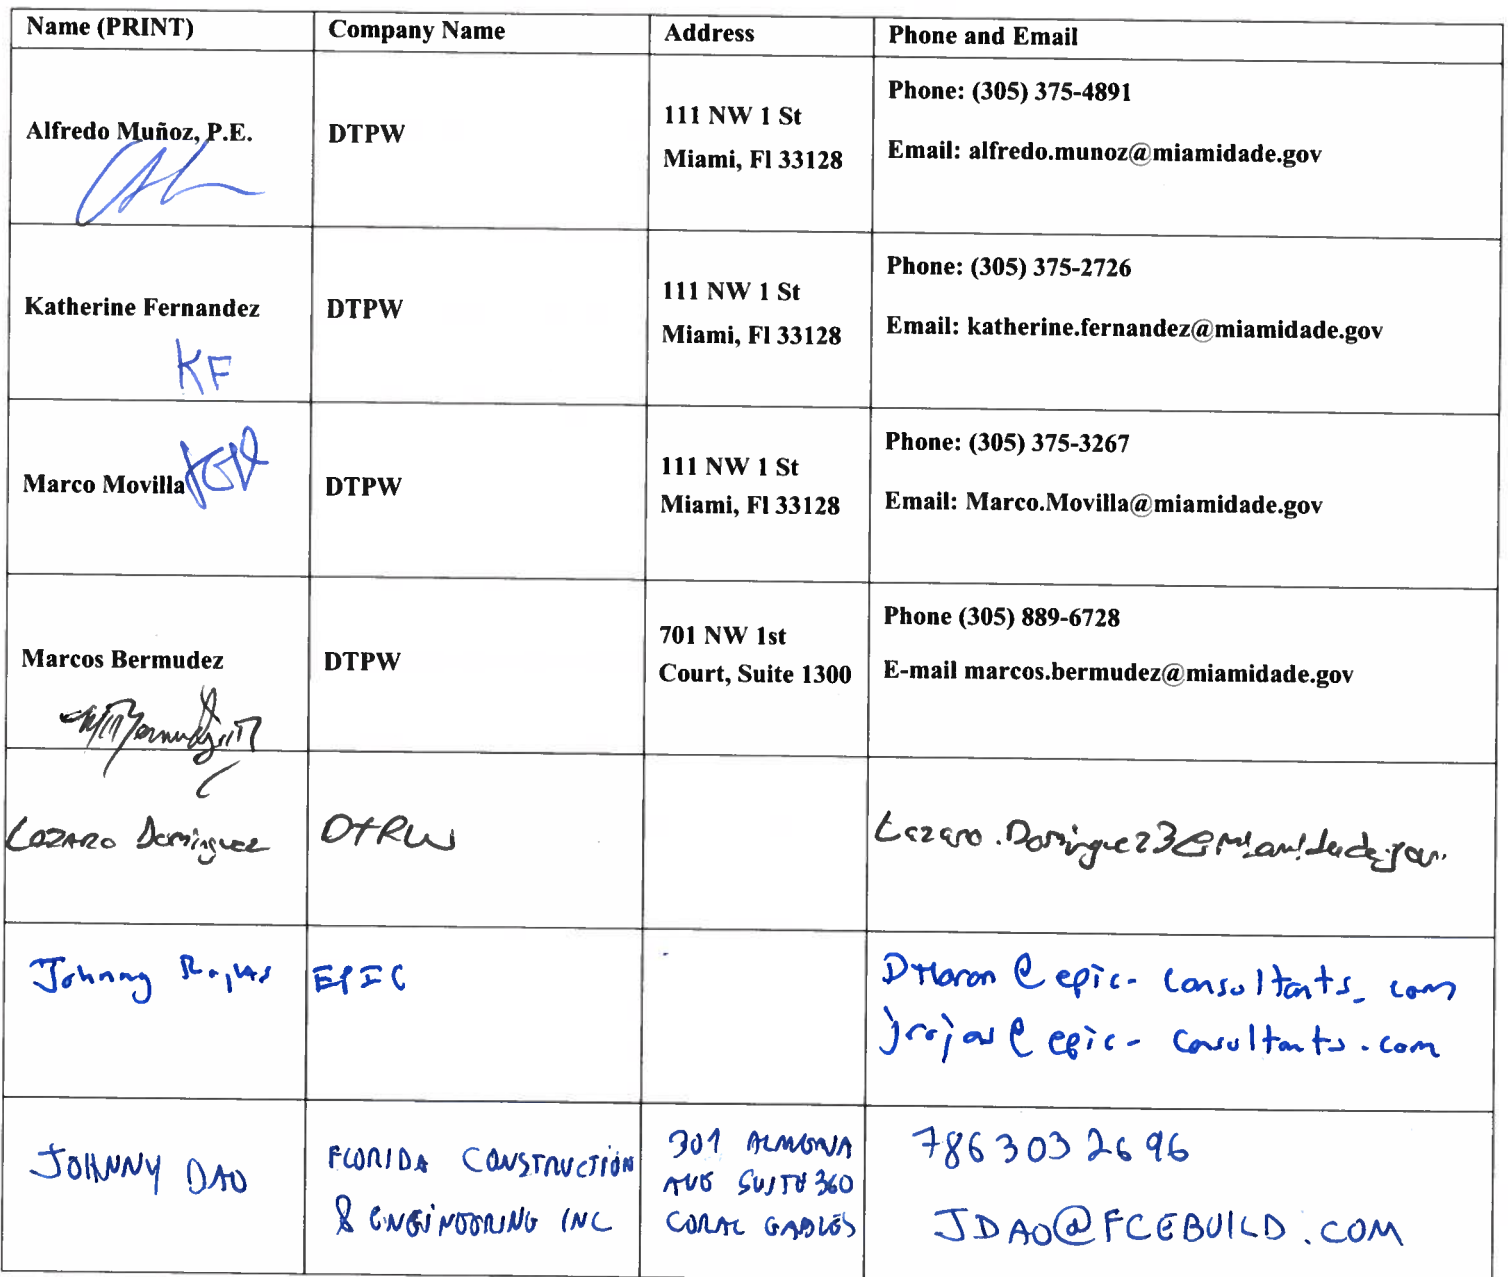 Name (PRINT) Company Name Address Phone and Email
Alfredo Muñoz, P.E. DTPW 111 NW 1 St Miami, Fl 33128 Phone: (305) 375-4891
Email: alfredo.munoz@miamidade.gov
Katherine Fernandez DTPW 111 NW 1 St Miami, Fl 33128 Phone: (305) 375-2726
Email: katherine.fernandez@miamidade.gov
KF
Marco Movilla DTPW 111 NW 1 St Miami, Fl 33128 Phone: (305) 375-3267
Email: Marco.Movilla@miamidade.gov
Marcos Bermudez DTPW 701 NW 1st Court, Suite 1300 Phone (305) 889-6728
E-mail marcos.bermudez@miamidade.gov
Lazaro Dominguez DTPW Lazaro.Dominguez3@miamidade.gov
Johnny Rojas EPIC
@epic-consultants.com
jrojas@epic-consultants.com
JOHNNY DAO FLORIDA CONSTRUCTION & ENGINEERING INC 301 ALMERIA AVE SUITE 360 CORAL GABLES 786 303 2696
JDAO@FCEBUILD.COM